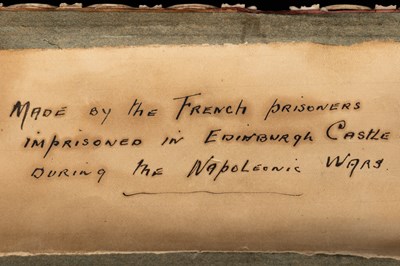 Made by the French prisoners
imprisoned in Edinburgh Castle
during the Napoleonic Wars.